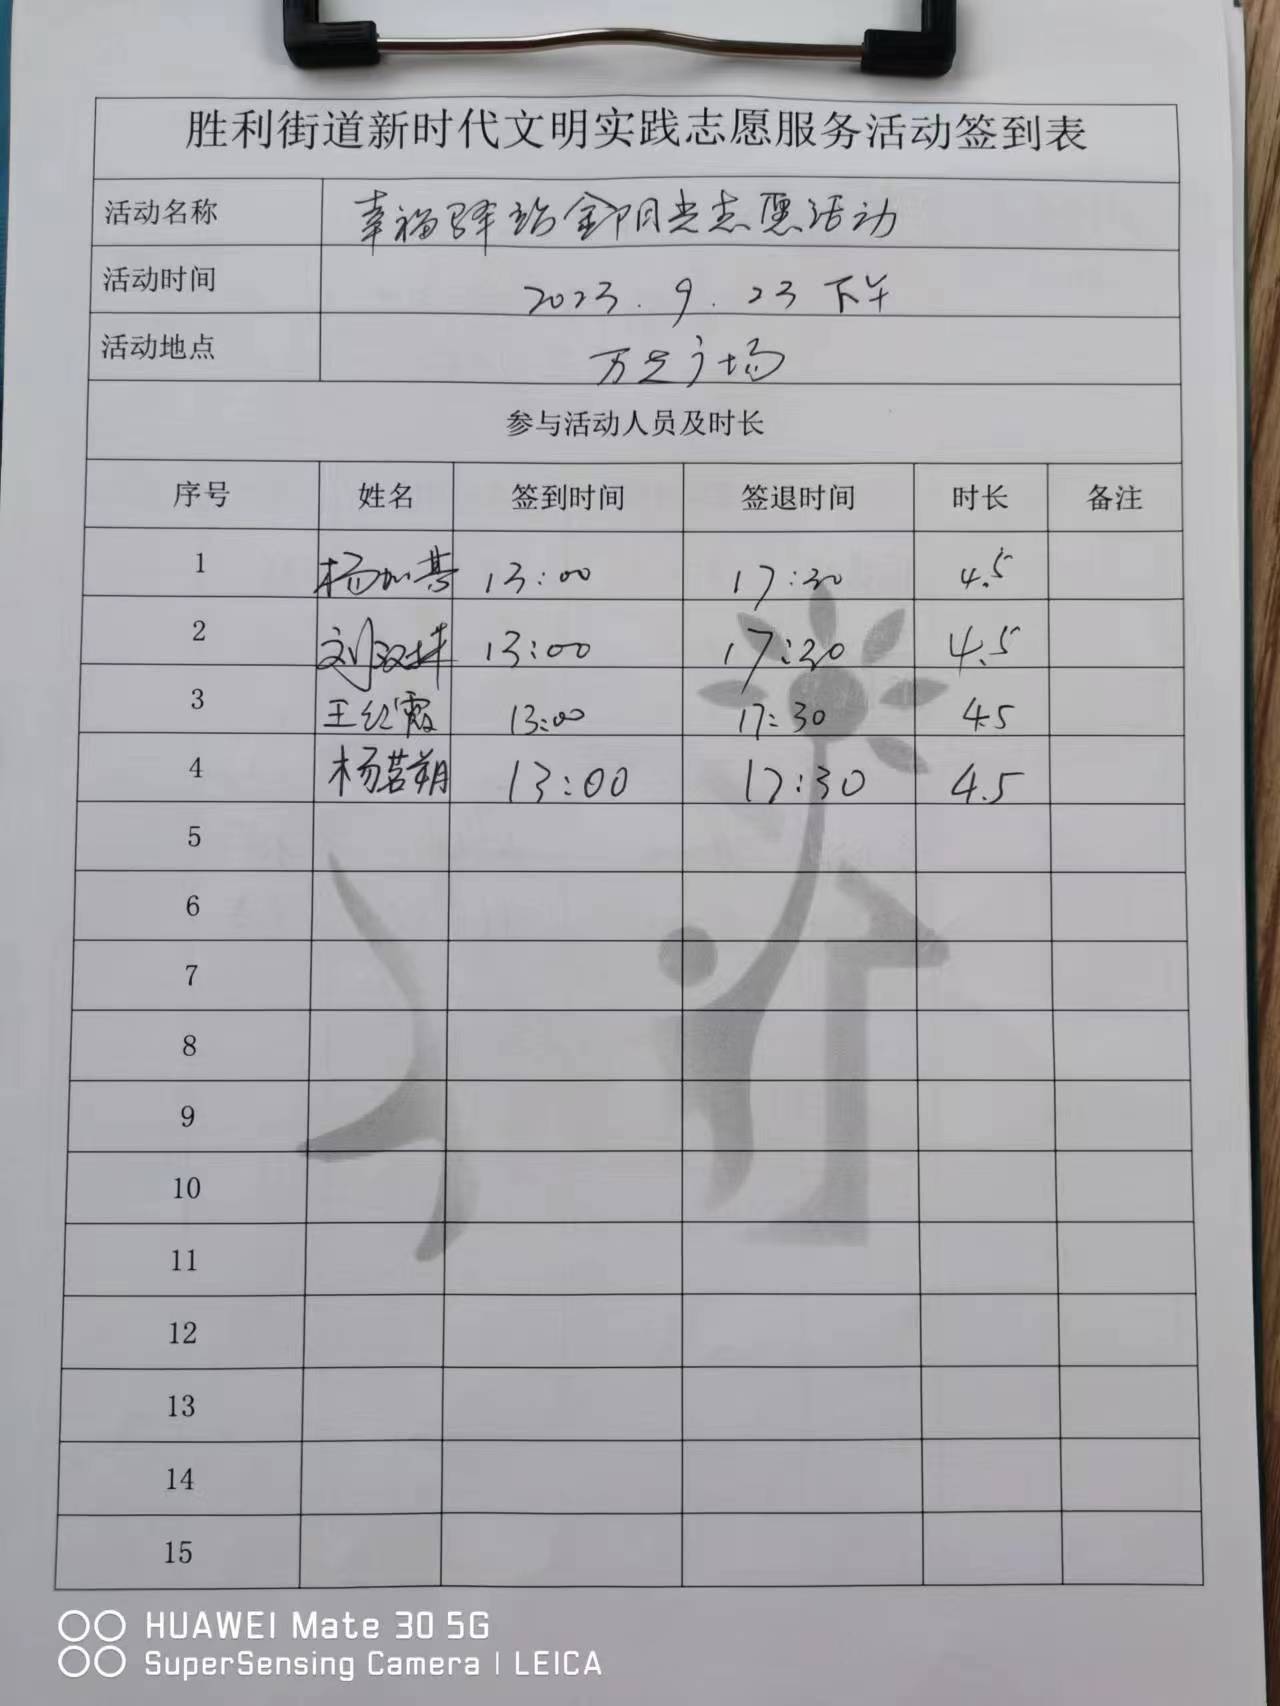 胜利街道新时代文明实践志愿服务活动签到表
活动名称 幸福驿站鄞阳光志愿活动
活动时间 2023.9.23 下午
活动地点 万达广场
参与活动人员及时长
序号 姓名 签到时间 签退时间 时长 备注
1 杨加其 13:00 17:30 4.5
2 刘双 13:00 17:30 4.5
3 王红霞 13:00 17:30 4.5
4 杨茗朔 13:00 17:30 4.5
5
6
7
8
9
10
11
12
13
14
15
HUAWEI Mate 30 5G
SuperSensing Camera | LEICA